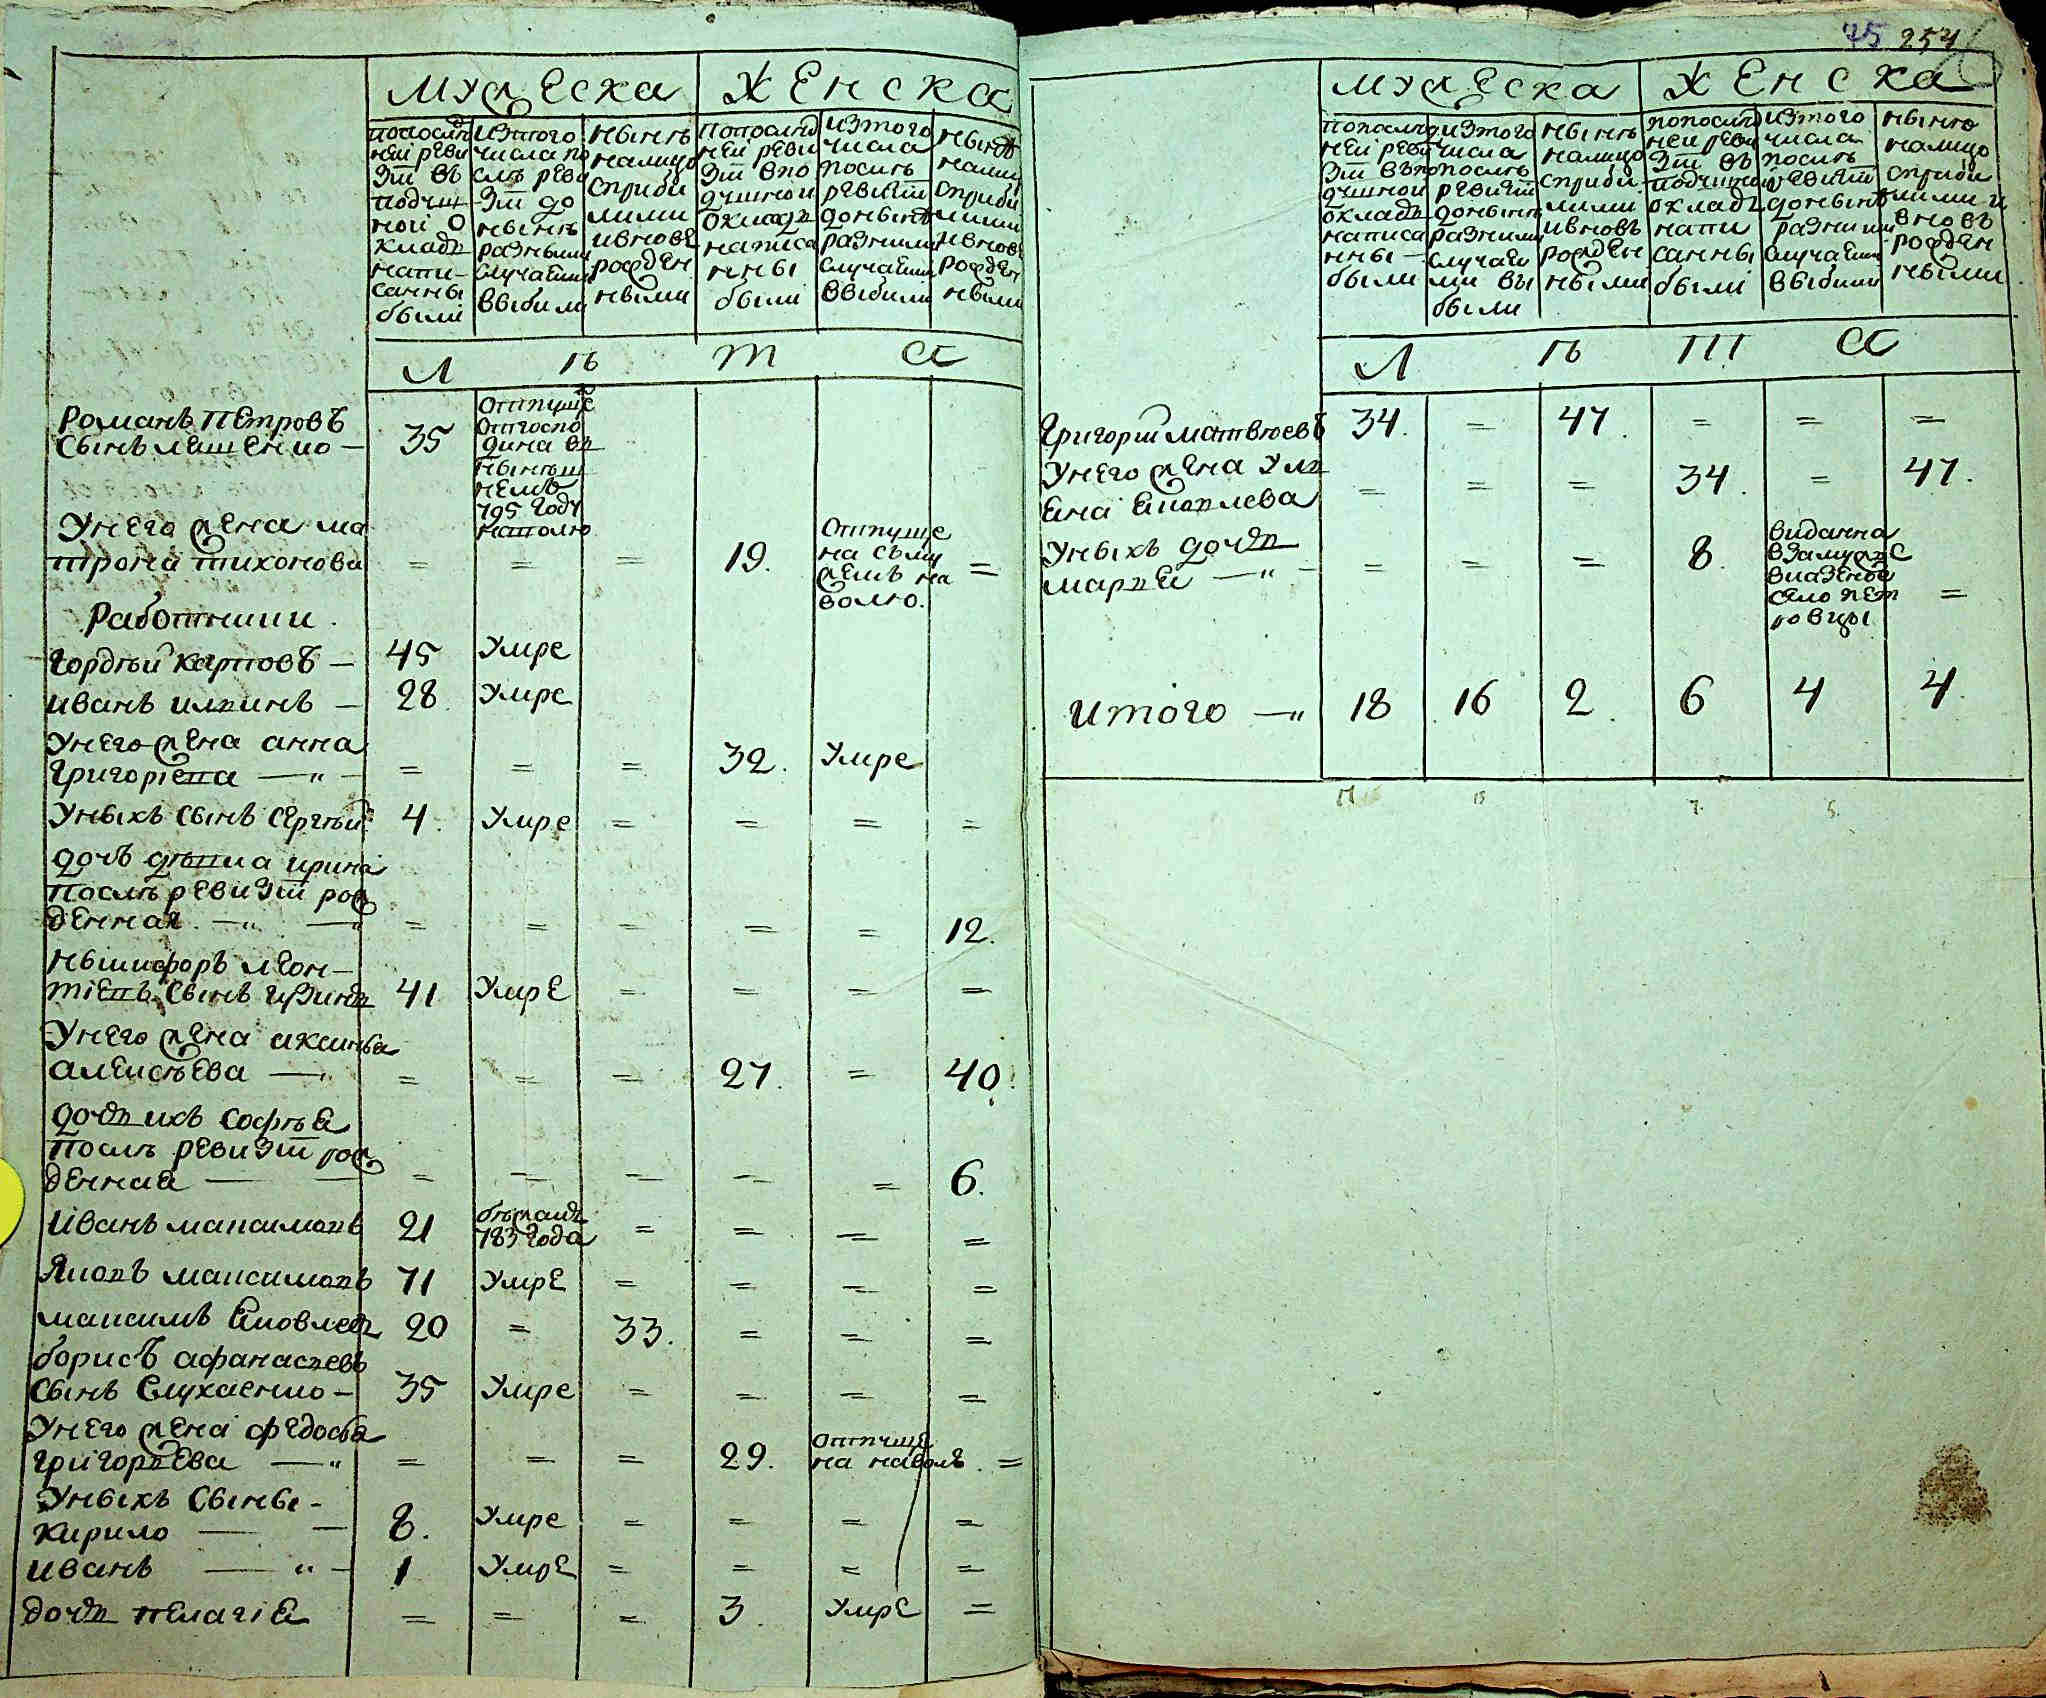 75 254
мужеска женска
попослѣд
ней реви
зіи въ
подуш
ной о
кладъ
напи-
санны
были
изтого
числа по
слѣ реви
зіи до
нынѣ
разными
случаями
выбыли
нынѣ
налицо
сприбы
лыми
ивновь
рожден
ными
попослѣд
ней реви
зіи впо
душной
окладъ
написа
нны
были
изтого
числа
послѣ
ревизіи
донынѣ
разными
случаями
выбыли
нынѣ
налиц
сприбы
лыми
ивновь
рожден
ными
л ѣ т а
Романъ Петровъ
сынъ лешенко — 35
Отпуще
отгоспо
дина въ
нынѣш
немъ
795 году
наволю
Унего жена ма
трона тихонова = = = 19. =
Отпуще
на съму
жемъ на
волю.
Работники.
Гордѣй карповъ — 45 Умре
иванъ илъинъ — 28. Умре
Унего жена анна
Григоріева — „ — = = = 32. Умре
Уныхъ сынъ сергѣй 4. Умре = = = =
дочь дѣвка ирина
послѣ ревизіи рож
денная — „ — „ = = = = = 12.
Никифоръ леон-
тіевъ сынъ 41 Умре = = = =
Унего жена аксинья
алексѣева — „ = = = 27. = 40.
дочь ихъ софѣя
послѣ ревизіи рож
денная — — = = = = = 6.
Иванъ максимовъ 21 = = = =
бѣжалъ
783 года
Яковъ максимовъ 71 Умре = = = =
максимъ яковлевъ 20 = 33. = = =
борисъ афанасьевъ
сынъ слухаенко — 35 Умре = = = =
Унего жена федосья
григорьева — „ = = = 29. =
отпуще
на наволь
Уныхъ сыны -
кирило — — 8. Умре = = = =
иванъ — „ — 1 Умре = = = =
дочь пелагія = = = 3. Умре =
мужеска женска
попослѣд
ней реви
зіи въпо
душной
окладъ
написа
нны —
были
изтого
числа
послѣ
ревизіи
донынѣ
разными
случая
ми вы
были
нынѣ
налицо
сприбы
лыми
ивновь
рожден
ными
попослѣд
ней реви
зіи въ
подушной
окладъ
напи
санны
были
изтого
числа
послѣ
ревизіи
донынѣ
разными
случаями
выбыли
нынѣ
налицо
сприбы
лыми и
вновь
рожден
ными
Л ѣ т а
Григорій матвѣевъ 34. = 47. = = =
Унего жена улъ
яна яковлева = = = 34. = 47.
Уныхъ дочь
марья — „ — = = = 8. =
выданна
взамужъс
вказеное
село пет
ровцы
Итого — „ 18 16 2. 6 4 4.